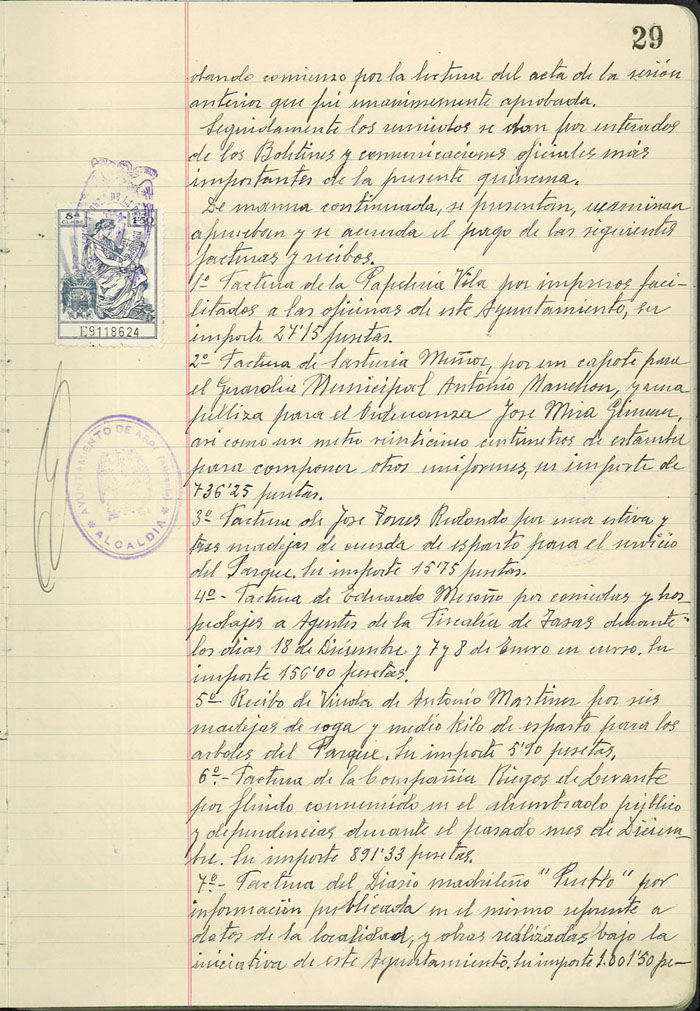 29
dando comienzo por la lectura del acta de la sesión
anterior que fué unanimemente aprobada.
Seguidamente los reunidos se dan por enterados
de los Boletines y comunicaciones oficiales más
importantes de la presente quincena.
De manera continuada, se presentan, examinan
aprueban y se acuerda el pago de las siguientes
facturas y recibos.
1º Factura de la Papeleria Vila por impresos faci-
litados a las oficinas de este Ayuntamiento, su
importe 27'15 pesetas.
2º Factura de Sastreria Muñoz, por un capote para
el Guardia Municipal Antonio Manchon, y una
pelliza para el Ordenanza Jose Mira Gimenez,
asi como un metro veinticinco centimetros de estambre
para componer otros uniformes, su importe de
736'25 pesetas.
3º Factura de Jose Torres Redondo por una estiva y
tres madejas de cuerda de esparto para el servicio
del Parque. Su importe 15'75 pesetas.
4º- Factura de Eduardo por comidas y hos
pedajes a Agentes de la Fiscalía de Tasas durante
los dias 18 de Diciembre y 7 y 8 de Enero en curso. Su
importe 156'00 pesetas.
5º Recibo de Viuda de Antonio Martinez por seis
madejas de soga y medio kilo de esparto para los
arboles del Parque. Su importe 5'90 pesetas.
6º.- Factura de la Compañia Riegos de Levante
por fluido consumido en el alumbrado público
y dependencias durante el pasado mes de Diciem-
bre. Su importe 891'33 pesetas.
7º- Factura del Diario madrileño "Pueblo" por
información publicada en el mismo referente a
datos de la localidad, y obras realizadas bajo la
iniciativa de este Ayuntamiento. Su importe 1.001'50 pe-
8ª
CLASE
1'50
E9118624
AYUNTAMIENTO DE
ALCALDIA